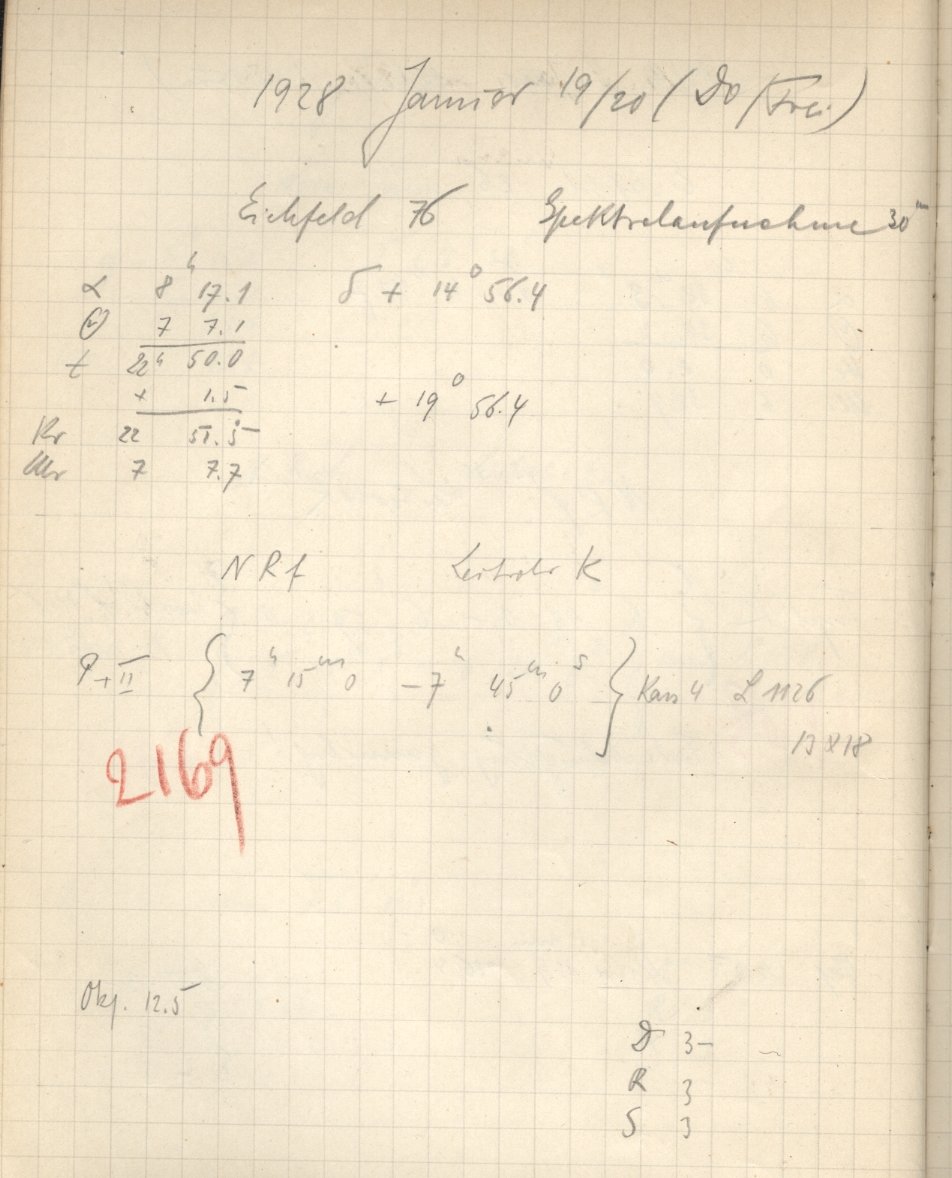 1928 Januar 19/20 (Do/Frei.)
Eichfeld 76 Spektralaufnahme 30ᵐ
α 8ʰ 17.1 δ + 14° 56.4
Θ 7 7.1
t 22ʰ 50.0
+ 1.5 + 19° 56.4
Kr 22 51.5
Uhr 7 7.7
N R f Leitrohr K
P + II { 7ʰ 15ᵐ 0 – 7ʰ 45ᵐ 0ˢ } Kass 4 L 1126
13 x 18
2169
Obj. 12.5
D 3–
R 3
S 3